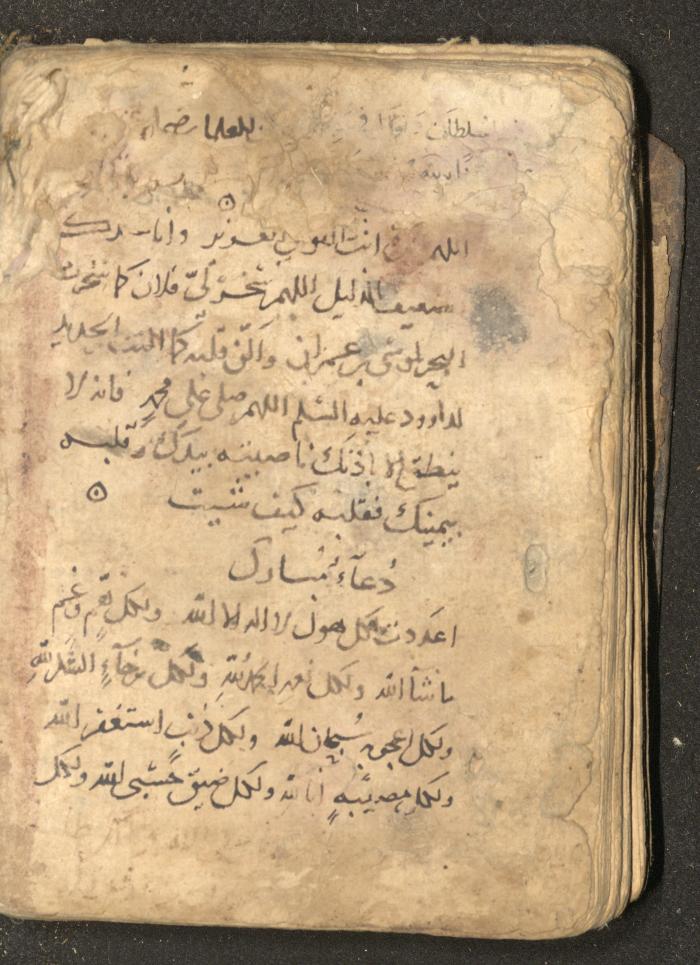 بلعلما
الله انت القوي العزيز وانا عبدك
ضعيف الذليل اللهم سخر لي فلان كما سخرت
البحر لموسى بن عمران والين قلبه كما الينت الحديد
لداوود عليه السلم اللهم صلي على محمد فانه لا
ينطق الا باذنك ناصيته بيدك وقلبه
بيمينك فقلبه كيف شيت
دعاء مبارك
اعددت لكل هول لا اله الا الله ولكل هم وغم
ماشا الله ولكل نعمه الحمد لله ولكل رخاء الشكر لله
ولكل اعجوبه سبحان الله ولكل ذنب استغفر الله
ولكل مصيبة انا لله ولكل ضيق حسبي الله ولكل